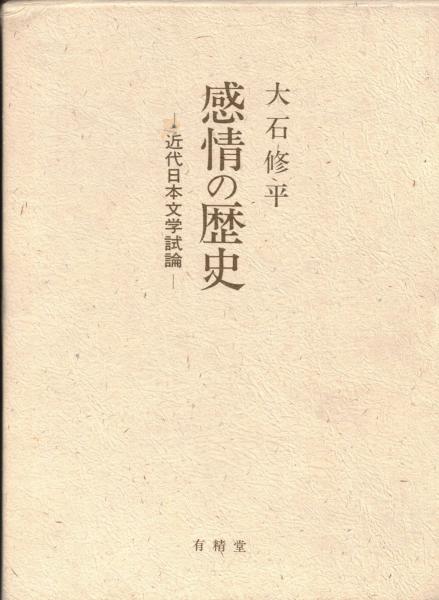 大石修平
感情の歴史
―近代日本文学試論―
有精堂